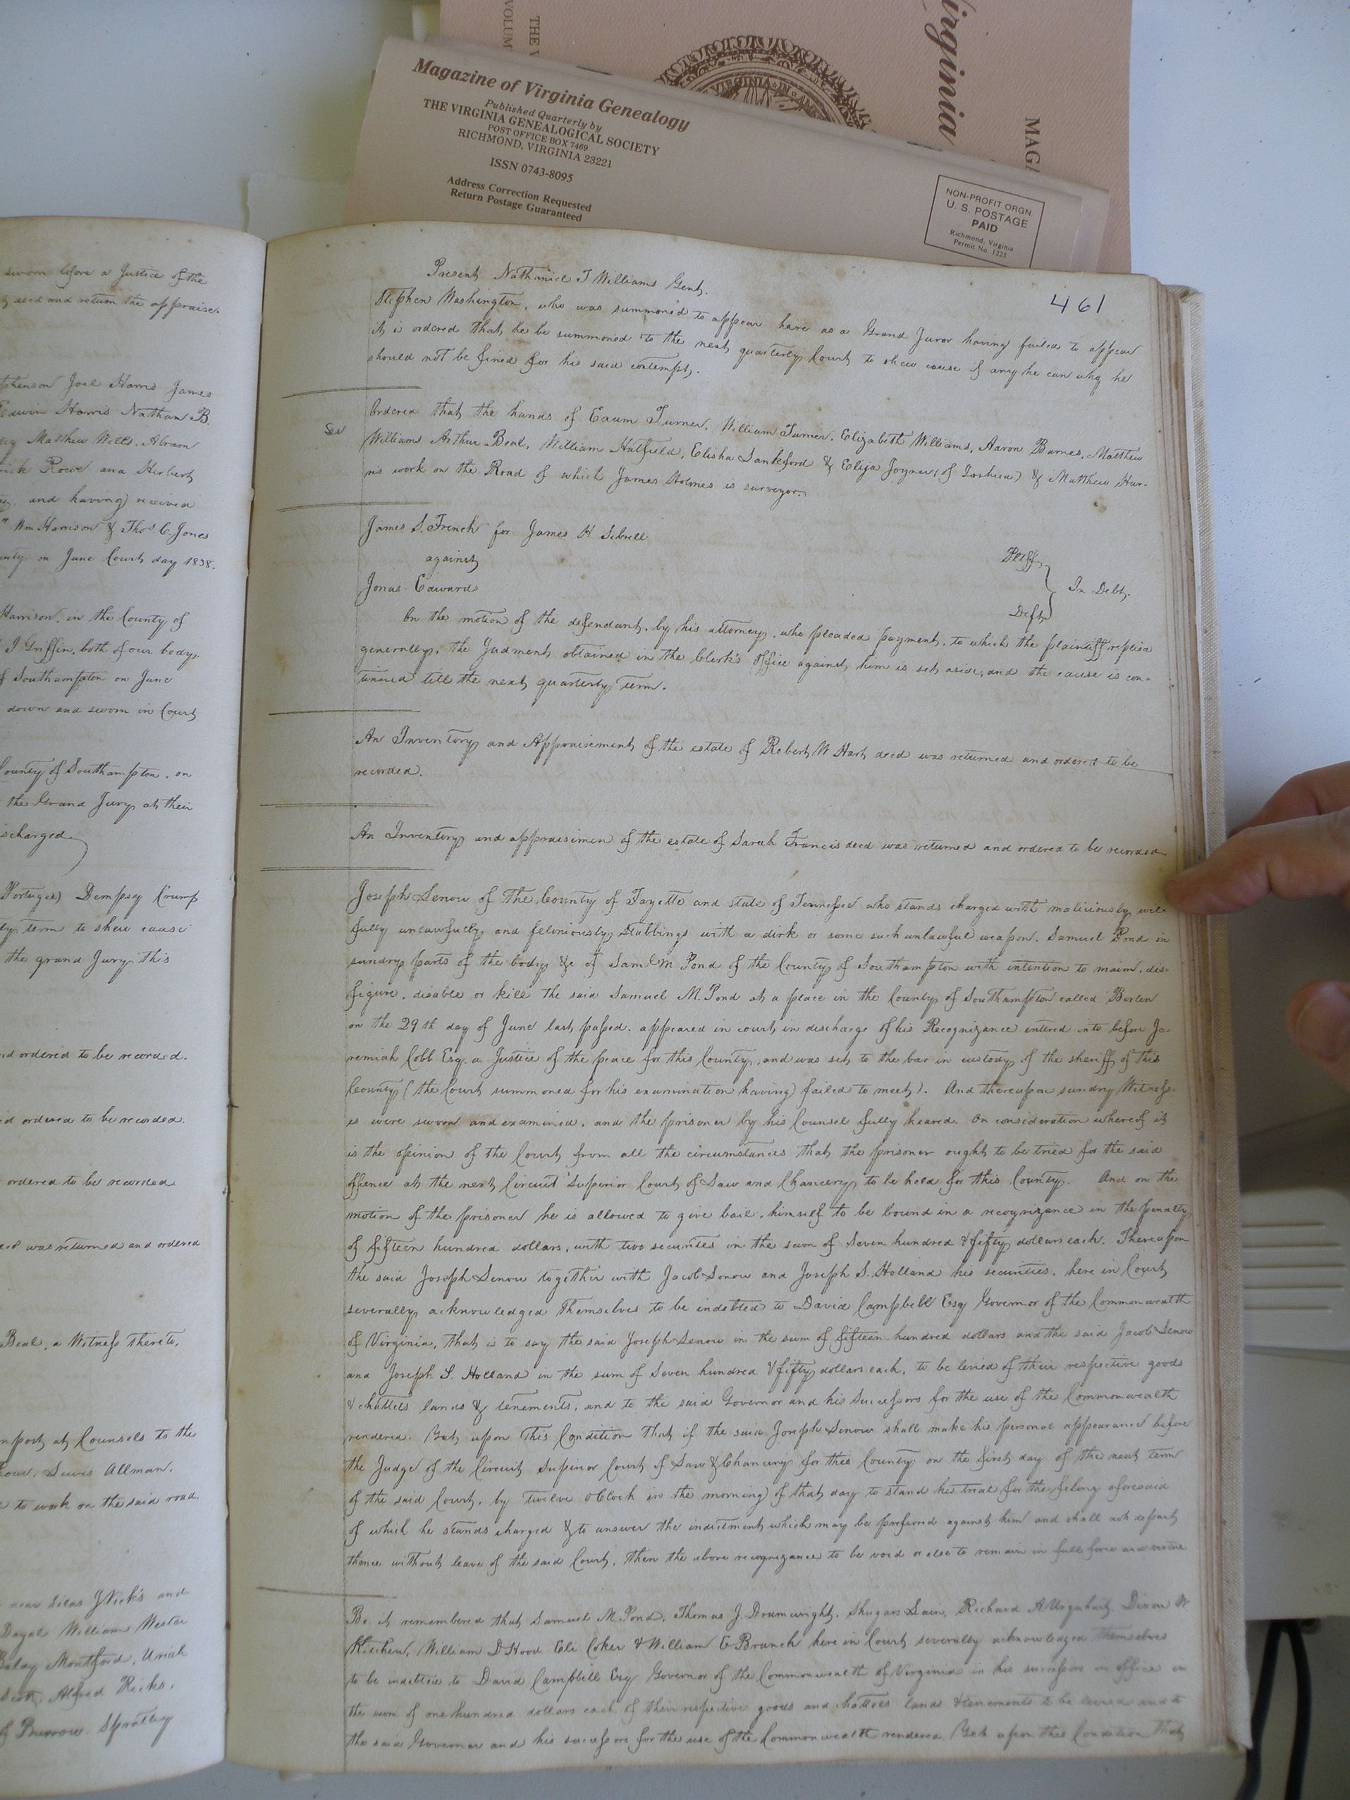 Magazine of Virginia Genealogy
Published Quarterly by
THE VIRGINIA GENEALOGICAL SOCIETY
POST OFFICE BOX 7469
RICHMOND, VIRGINIA 23221
ISSN 0743-8095
Address Correction Requested
Return Postage Guaranteed
NON-PROFIT ORGN.
U. S. POSTAGE
PAID
Richmond, Virginia
Permit No. 1325
Virginia
sworn before a Justice of the
and return the appraise-
Joel Harris James
Edwin Harris Nathan B.
Matthew Wells, Abram
Rowe and Herbert
and having received
Wm Harrison & Thos C. Jones
on June Court day 1838.
Harrison, in the County of
Griffin, both of our body
Southampton on June
down and sworn in Court
County of Southampton, on
the Grand Jury at their
Dempsey Crump
term to shew cause
the grand Jury this
ordered to be recorded.
ordered to be recorded.
ordered to be recorded
was returned and ordered
Beal, a Witness thereto,
at Counsels to the
Lewis Allman,
to work on the said road.
461
Present Nathaniel T Williams Gent.
Stephen Washington, who was summon'd to appear here as a Grand Juror having failed to appear
it is ordered that he be summoned to the next quarterly Court to shew cause if any he can why he
should not be fined for his said contempt.
Ordered that the hands of Exum Turner, William Turner, Elizabeth Williams, Aaron Barnes, Matthew
Williams Arthur Beal, William Hatfield, Elisha Lankford & Elija Joyner (of Joshua) & Matthew Har-
ris work on the Road of which James Holmes is surveyor.
James S. French for James H Sebrell
Plff
against
In Debt.
Jonas Edwards
Deft
On the motion of the defendant, by his attorney, who pleaded payment, to which the plaintiff replied
generally, the Judment obtained in the Clerk's office against him is set aside, and the cause is con-
tinued till the next quarterly term.
An Inventory and Appraisement of the estate of Robert W Hart decd was returned and ordered to be
recorded.
An Inventory and appraisement of the estate of Sarah Francis decd was returned and ordered to be recorded
Joseph Senow of the County of Fayette and state of Tennessee who stands charged with maliciously wil-
fully unlawfully and feloniously stabbing with a dirk or some such unlawful weapon, Samuel Pond in
sundry parts of the body &c of Saml M Pond of the County of Southampton with intention to maim, dis-
figure, disable or kill the said Samuel M. Pond at a place in the County of Southampton called
on the 29th day of June last passed, appeared in court in discharge of his Recognizance entered into before Je-
remiah Cobb Esq. a Justice of the peace for this County, and was set to the bar in custody of the sheriff of this
County (the Court summoned for his examination having failed to meet). And thereupon sundry Witness-
es were sworn and examined, and the prisoner by his Counsel fully heard. On consideration whereof it
is the opinion of the Court from all the circumstances that the prisoner ought to be tried for the said
offence at the next Circuit Superior Court of Law and Chancery to be held for this County. And on the
motion of the prisoner he is allowed to give bail, himself to be bound in a recognizance in the penalty
of fifteen hundred dollars, with two securities in the sum of Seven hundred & fifty dollars each. Thereupon
the said Joseph Senow together with Jacob Senow and Joseph S. Holland his securities, here in Court
severally acknowledged themselves to be indebted to David Campbell Esq Governor of the Commonwealth
of Virginia, that is to say the said Joseph Senow in the sum of fifteen hundred dollars and the said Jacob Senow
and Joseph S. Holland in the sum of Seven hundred & fifty dollars each, to be levied of their respective goods
& chattels lands & tenements, and to the said Governor and his Successors for the use of the Commonwealth
rendered. But upon this Condition that if the said Joseph Senow shall make his personal appearance before
the Judge of the Circuit Superior Court of Law & Chancery for this County on the first day of the next term
of the said Court, by twelve o'Clock in the morning of that day to stand his trial for the felony aforesaid
of which he stands charged & to answer the indictment which may be preferred against him and shall not depart
thence without leave of the said Court, then the above recognizance to be void or else to remain in full force and virtue
Be it remembered that Samuel M. Pond, Thomas J. Drumwright, Shugars Lain, Richard A Urquhart, Dixon W
Kitchen, William D Hood Eli Coker & William E Branch here in Court severally acknowledged themselves
to be indebted to David Campbell Esq Governor of the Commonwealth of Virginia in his successors in office in
the sum of one hundred dollars each of their respective goods and chattels lands & tenements to be levied and to
the said Governor and his successors for the use of the Commonwealth rendered. But upon this Condition that